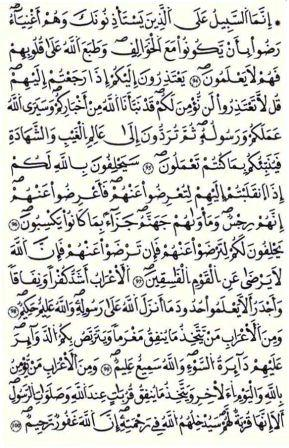 إِنَّمَا السَّبِيلُ عَلَى الَّذِينَ يَسْتَاذِنُونَكَ وَهُمُ أَغْنِيَاءُ
رَضُوا بِأَنْ يَكُونُوا مَعَ الْخَوَالِفِ وَطَبَعَ اللَّهُ عَلَى قُلُوبِهِمْ
فَهُمْ لَا يَعْلَمُونَ يَعْتَذِرُونَ إِلَيْكُمُ إِذَا رَجَعْتُمُ إِلَيْهِمْ
قُل لَّا تَعْتَذِرُوا لَن نُّومِنَ لَكُمْ قَدْ نَبَّأَنَا اللَّهُ مِنَ اخْبَارِكُمْ وَسَيَرَى اللَّهُ
عَمَلَكُمْ وَرَسُولُهُ ثُمَّ تُرَدُّونَ إِلَى عَالِمِ الْغَيْبِ وَالشَّهَادَةِ
فَيُنَبِّئُكُم بِمَا كُنتُمْ تَعْمَلُونَ سَيَحْلِفُونَ بِاللَّهِ لَكُمُ
إِذَا انقَلَبْتُمُ إِلَيْهِمْ لِتُعْرِضُوا عَنْهُمْ فَأَعْرِضُوا عَنْهُمُ
إِنَّهُمْ رِجْسٌ وَمَأْوَاهُمْ جَهَنَّمُ جَزَاءً بِمَا كَانُوا يَكْسِبُونَ
يَحْلِفُونَ لَكُمْ لِتَرْضَوْا عَنْهُمْ فَإِن تَرْضَوْا عَنْهُمْ فَإِنَّ اللَّهَ
لَا يَرْضَى عَنِ الْقَوْمِ الْفَاسِقِينَ الْأَعْرَابُ أَشَدُّ كُفْرًا وَنِفَاقًا
وَأَجْدَرُ أَلَّا يَعْلَمُوا حُدُودَ مَا أَنزَلَ اللَّهُ عَلَى رَسُولِهِ وَاللَّهُ عَلِيمٌ حَكِيمٌ
وَمِنَ الْأَعْرَابِ مَن يَتَّخِذُ مَا يُنفِقُ مَغْرَمًا وَيَتَرَبَّصُ بِكُمُ الدَّوَائِرَ
عَلَيْهِمْ دَائِرَةُ السَّوْءِ وَاللَّهُ سَمِيعٌ عَلِيمٌ وَمِنَ الْأَعْرَابِ مَن يُومِنُ
بِاللَّهِ وَالْيَوْمِ الْآخِرِ وَيَتَّخِذُ مَا يُنفِقُ قُرُبَاتٍ عِندَ اللَّهِ وَصَلَوَاتِ الرَّسُولِ
أَلَا إِنَّهَا قُرُبَةٌ لَّهُمْ سَيُدْخِلُهُمُ اللَّهُ فِي رَحْمَتِهِ إِنَّ اللَّهَ غَفُورٌ رَّحِيمٌ